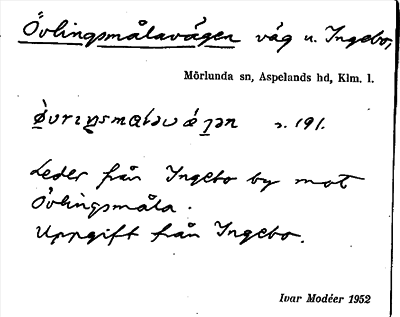 Övlingsmålavägen väg u. Ingebo,
Mörlunda sn, Aspelands hd, Klm. l.
s. 191.
Leder från Ingebo by mot
Övlingsmåla.
Uppgift från Ingebo.
Ivar Modéer 1952